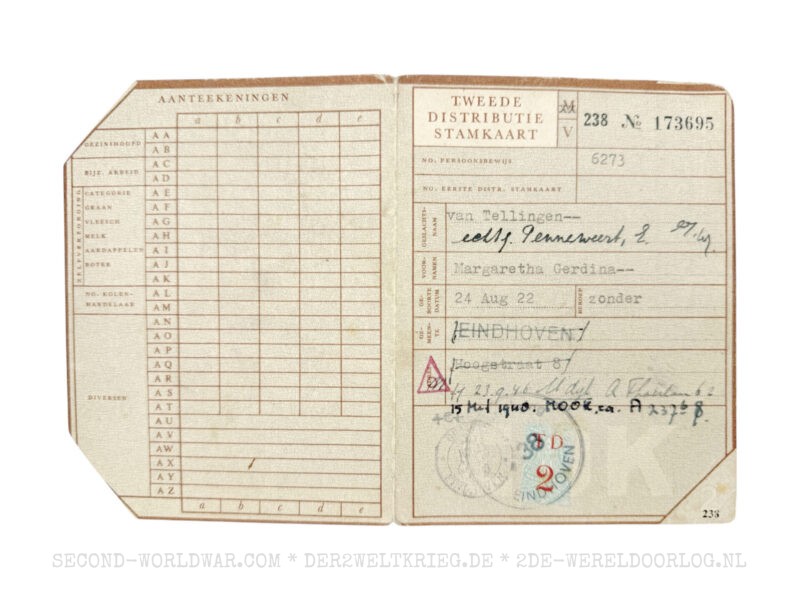 AANTEEKENINGEN
a b c d e
GEZINSHOOFD
AA
AB
BIJZ. ARBEID
AC
AD
ZELFVERZORGING
CATEGORIE
AE
GRAAN
AF
VLEESCH
AG
MELK
AH
AARDAPPELEN
AI
BOTER
AJ
AK
NO. KOLEN-
HANDELAAR
AL
AM
AN
AO
AP
AQ
AR
DIVERSEN
AS
AT
AU
AV
AW
AX
AY
AZ
a b c d e
TWEEDE
DISTRIBUTIE
STAMKAART
M
V
238 No 173695
NO. PERSOONSBEWIJS
6273
NO. EERSTE DISTR. STAMKAART
GESLACHTS-
NAAM
van Tellingen--
echtg. Penneweert, E.
VOOR-
NAMEN
Margaretha Gerdina--
GE-
BOORTE
DATUM
24 Aug 22
BEROEP
zonder
GE-
MEEN-
TE
EINDHOVEN
Hoogstraat 8
23.9.46
15 Mei 1948. MOOK, ca. A 237
TD
2
38
EINDHOVEN
238
SECOND-WORLDWAR.COM * DER2WELTKRIEG.DE * 2DE-WERELDOORLOG.NL